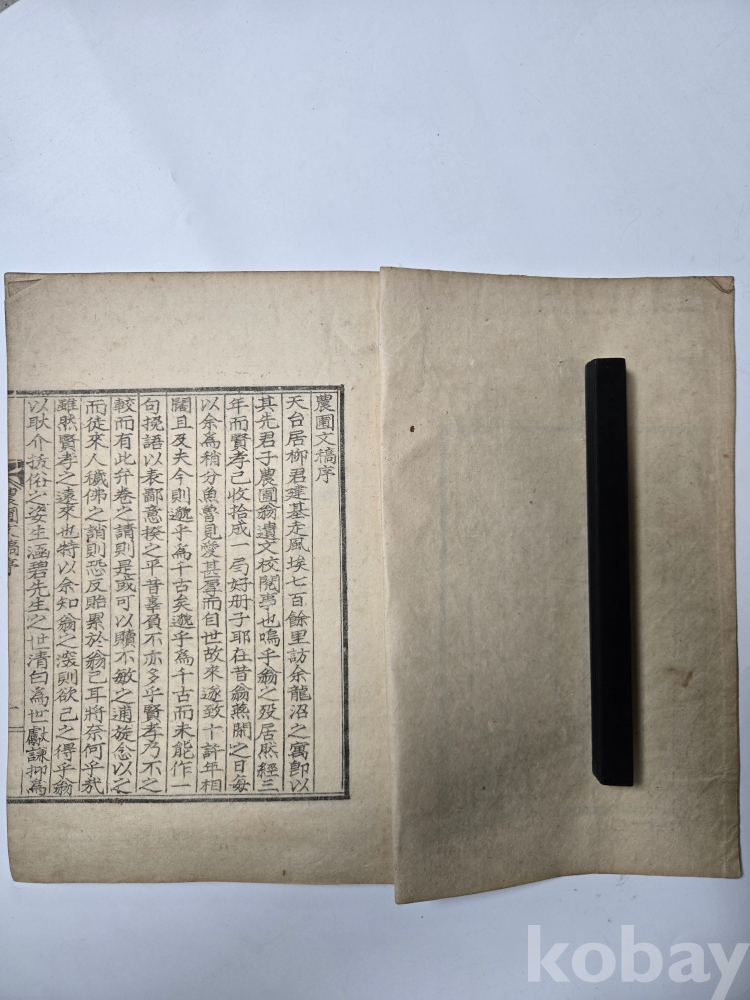 農圃文稿序
天台居柳君建基走風埃七百餘里訪余龍沼之寓卽以
其先君子農圃翁遺文校閱事也嗚乎翁之歿居然經三
年而賢孝已收拾成一局好册子耶在昔翁燕閒之日每
以余爲稍分魚魯見愛甚厚而自世故來遂致十許年相
闊且及夫今則邈乎爲千古矣邈乎爲千古而未能作一
句挽語以表鄙意揆之平昔辜負不亦多乎賢孝乃不之
較而有此弁卷之請則是或可以贖不敏之逋旋念以之
而徒來人穢佛之誚則恐反貽累於翁已耳將奈何乎哉
雖然賢孝之遠來也特以余知翁之深則欲己之得乎翁
以耿介拔俗之姿生涵碧先生之世淸白爲世獻謙抑爲
農圃文稿序
一
kobay